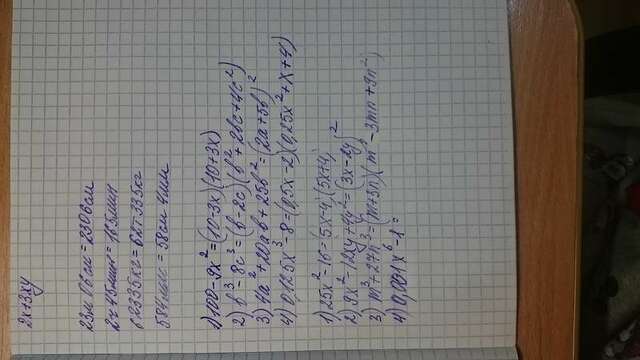 2x+3xy
23м 06см = 2306см
2ч 45мин = 165мин
62335кг = 62т 335кг
584мм = 58см 4мм
1) 100-9x² = (10-3x)(10+3x)
2) b³-8c³ = (b-2c)(b²+2bc+4c²)
3) 4a²+20ab+25b² = (2a+5b)²
4) 0,125x³-8 = (0,5x-2)(0,25x²+x+4)
1) 25x²-16 = (5x-4)(5x+4)
2) 9x²-12xy+4y² = (3x-2y)²
3) m³+27n³ = (m+3n)(m²-3mn+9n²)
4) 0,001x⁶-1 =